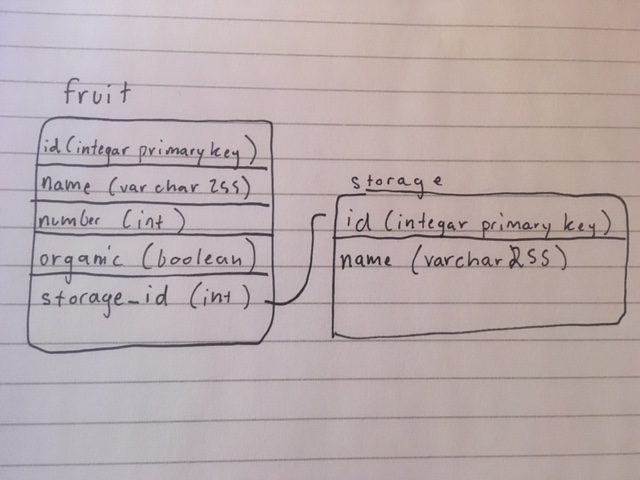 fruit
id (integar primary key)
name (varchar 255)
number (int)
organic (boolean)
storage_id (int)
storage
id (integar primary key)
name (varchar 255)